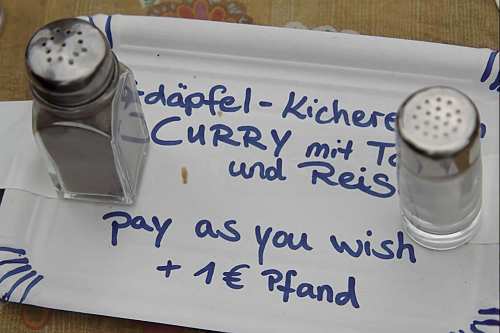 -däpfel - Kichere
CURRY mit To
und Reis
pay as you wish
+ 1€ Pfand